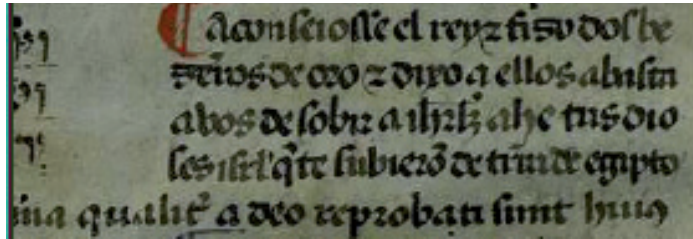 aconseiosse el rey ⁊ fizo dos be
zeros de oro ⁊ dixo a ellos abasta
a bos de sobir a ihrlz̃ ahe tus dio
ses isrl' q̃ te subierõ de tr̃ra de egipto
qualit̃ a deo reprobati sunt huiꝰ